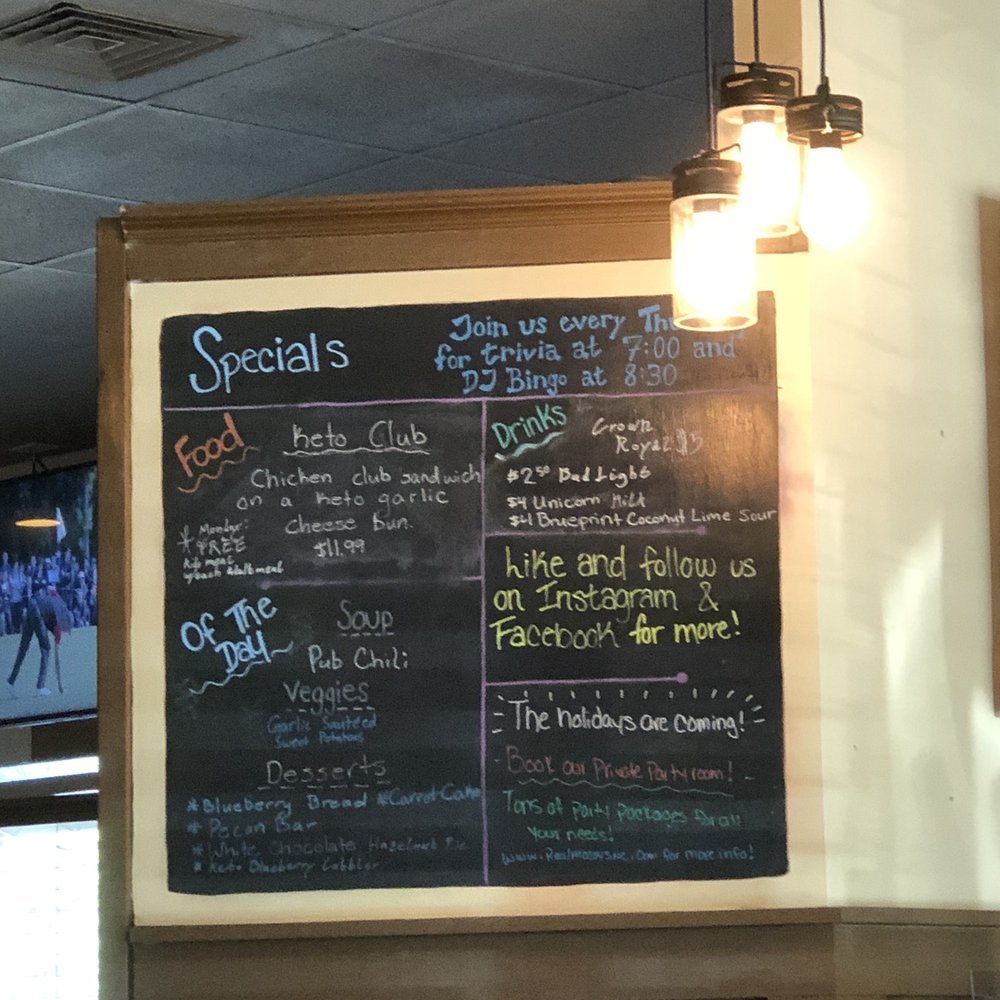 Specials
Join us every
for trivia at 7:00 and
DJ Bingo at 8:30
Food
Keto Club
Chicken club sandwich
on a keto garlic
cheese bun.
$11.99
* Monday:
FREE
Kids meal
w/each adult meal
Drinks
Crown
Royal $5
$2⁵⁰ Bud Light
$4 Unicorn Milk
$4 Blueprint Coconut Lime Sour
Like and follow us
on Instagram &
Facebook for more!
Of The
Day
Soup
Pub Chili
Veggies
Garlic Sauteed
Sweet Potatoes
Desserts
*Blueberry Bread *Carrot Cake
* Pecan Bar
* White Chocolate Hazelnut Pie
* Keto Blueberry Cobbler
The holidays are coming!
- Book our Private Party room! -
Tons of Party Packages for all
your needs!
for more info!